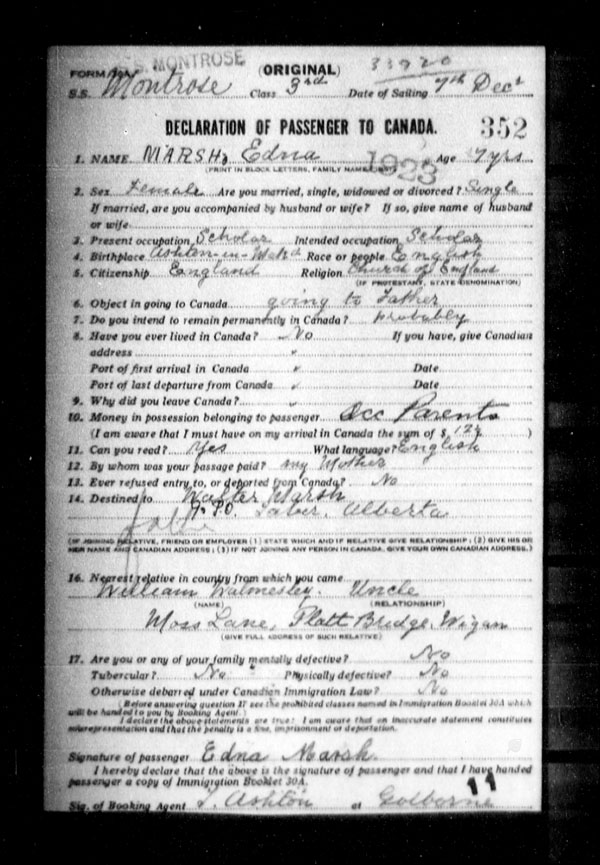 S.S. MONTROSE
FORM 30A (ORIGINAL) 33920
S.S. Montrose Class 3rd Date of Sailing 7th Decr
DECLARATION OF PASSENGER TO CANADA. 352
1. NAME MARSH, Edna Age 7 yrs
(PRINT IN BLOCK LETTERS, FAMILY NAME FIRST) 1923
2. Sex Female Are you married, single, widowed or divorced? Single
If married, are you accompanied by husband or wife? If so, give name of husband
or wife
3. Present occupation Scholar Intended occupation Scholar
4. Birthplace Ashton-in-Mak'd Race or people English
5. Citizenship England Religion Church of England
(IF PROTESTANT, STATE DENOMINATION)
6. Object in going to Canada going to Father
7. Do you intend to remain permanently in Canada? probably
8. Have you ever lived in Canada? No If you have, give Canadian
address "
Port of first arrival in Canada " Date
Port of last departure from Canada " Date
9. Why did you leave Canada? "
10. Money in possession belonging to passenger Acc Parents
(I am aware that I must have on my arrival in Canada the sum of $ )
11. Can you read? Yes What language? English
12. By whom was your passage paid? my Mother
13. Ever refused entry to, or deported from Canada? No
14. Destined to Walter Marsh
P.O. Taber, Alberta
(IF JOINING RELATIVE, FRIEND OR EMPLOYER (1) STATE WHICH AND IF RELATIVE GIVE RELATIONSHIP; (2) GIVE HIS OR
HER NAME AND CANADIAN ADDRESS; (3) IF NOT JOINING ANY PERSON IN CANADA, GIVE YOUR OWN CANADIAN ADDRESS.)
16. Nearest relative in country from which you came
William Walmesley. Uncle
(NAME) (RELATIONSHIP)
Moss Lane, Platt Bridge, Wigan
(GIVE FULL ADDRESS OF SUCH RELATIVE)
17. Are you or any of your family mentally defective? No
Tubercular? No Physically defective? No
Otherwise debarred under Canadian Immigration Law? No
(Before answering question 17 see the prohibited classes named in Immigration Booklet 30A which
will be handed to you by Booking Agent.)
I declare the above statements are true: I am aware that an inaccurate statement constitutes
misrepresentation and that the penalty is a fine, imprisonment or deportation.
Signature of passenger Edna Marsh
I hereby declare that the above is the signature of passenger and that I have handed
passenger a copy of Immigration Booklet 30A. 11
Sig. of Booking Agent T. Ashton at Golborne